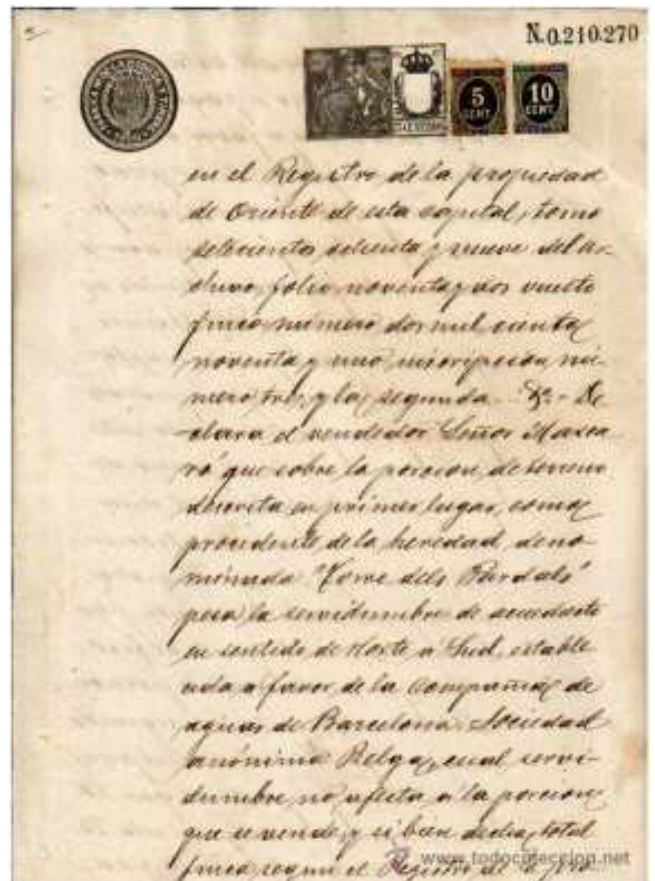 N.0.210.270
5 CENT
10 CENT
en el Registro de la propiedad
de Oriente de esta capital, tomo
setecientos setenta y nueve del ar-
chivo, folio noventa y dos vuelto
finca número dos mil ciento
noventa y uno, inscripción nú-
mero tres, y la segunda
clara el vendedor Señor Masca-
ró que sobre la porcion de terreno
descrita en primer lugar, como
procedente de la heredad deno-
minada "Torre dels Pardals"
pesa la servidumbre de acueducto
en sentido de Norte a Sud, estable
cida a favor de la Compañia de
aguas de Barcelona Sociedad
anónima Belga, cual servi-
dumbre no afecta a la porcion
que se vende, y si bien dicha total
finca segun el Registro de la pro
www.todocoleccion.net